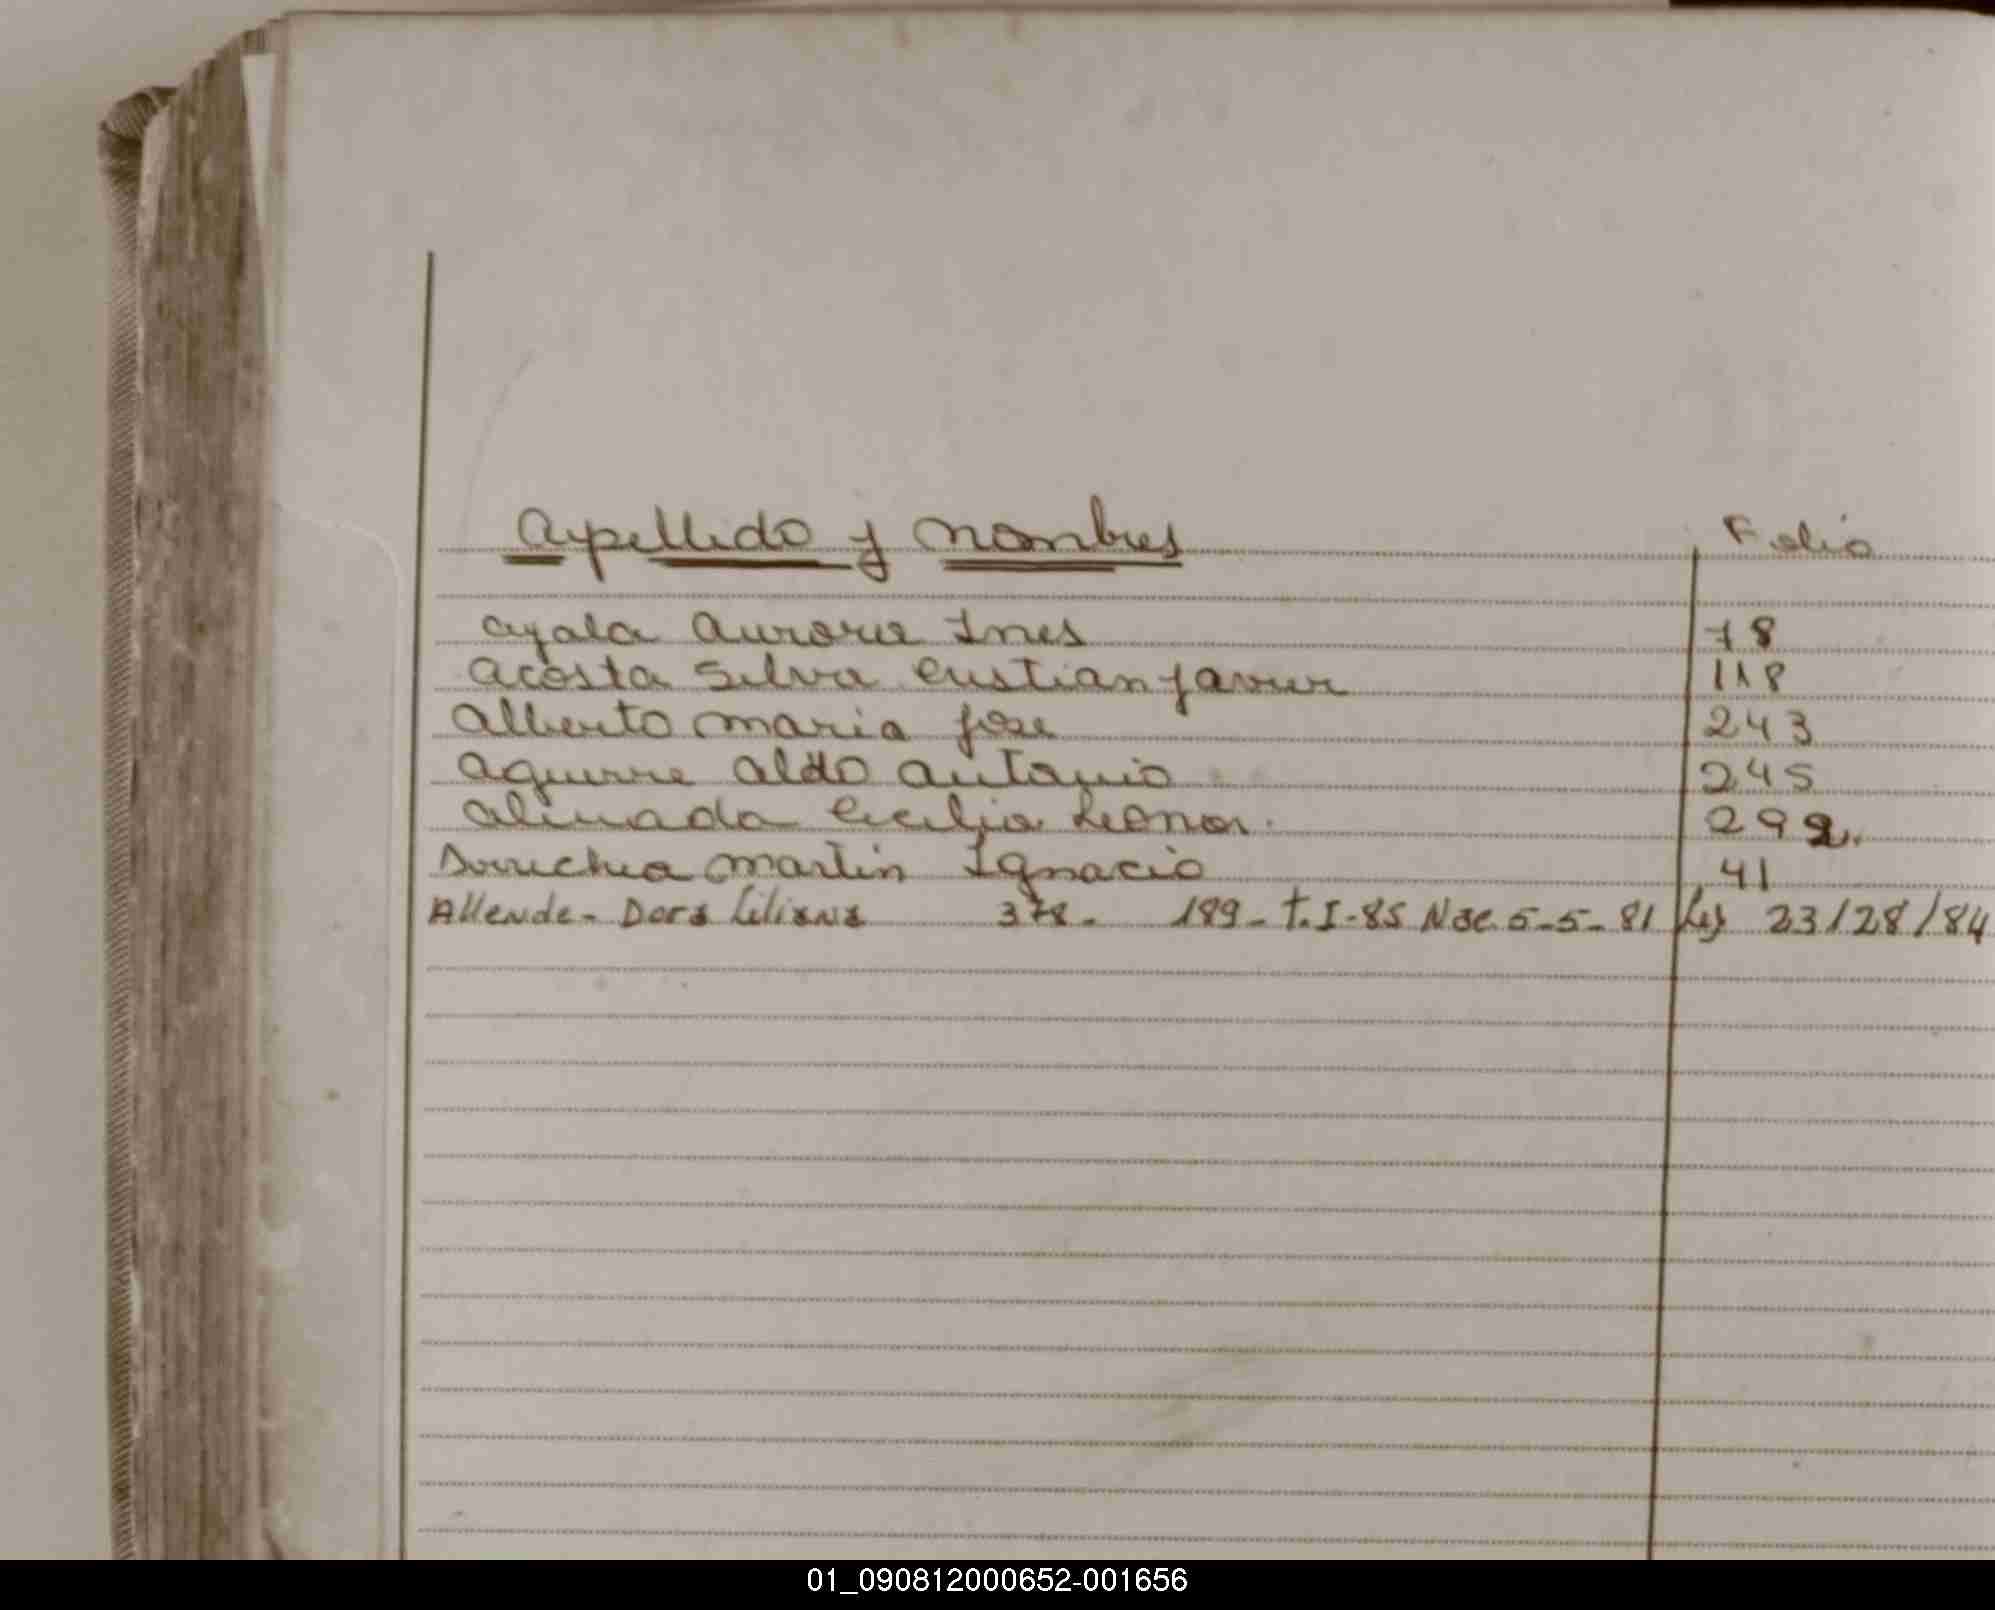 Apellido y Nombres Folio
Ayala Aurora Ines 78
Acosta Silva Cristian Javier 118
Alberto Maria Jose 243
Aguirre Aldo Antonio 245
Almada Cecilia Leonor. 292.
Martin Ignacio 41
Allende - Dora Liliana 378 - 189 - T. I - 85 Nac. 5-5-81 Ley 23/28/84
01_090812000652-001656